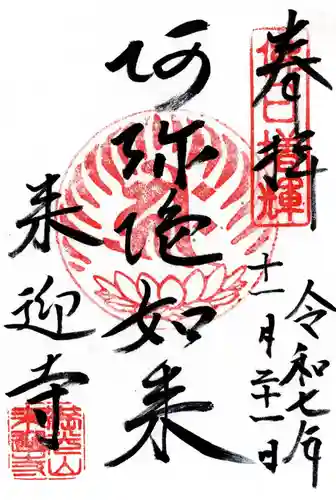 奉拝
令和七年
十一月二十一日
阿弥陀如来
来迎寺
佛日増輝